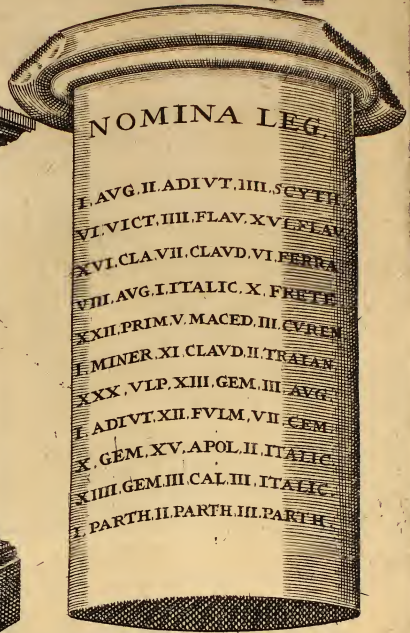 NOMINA LEG.
I.AVG.II.ADIVT.IIII.SCYTH
VI.VICT.IIII.FLAV.XVI.FLAV
XVI.CLA.VII.CLAVD.VI.FERRA
VIII.AVG.I.ITALIC.X.FRETE
XXII.PRIM.V.MACED.III.CVREN
I.MINER.XI.CLAVD.II.TRAIAN
XXX.VLP.XIII.GEM.III.AVG.
I.ADIVT.XII.FVLM.VII.GEM.
X.GEM.XV.APOL.II.ITALIC.
XIIII.GEM.III.CAL.III.ITALIC.
I.PARTH.II.PARTH.III.PARTH.